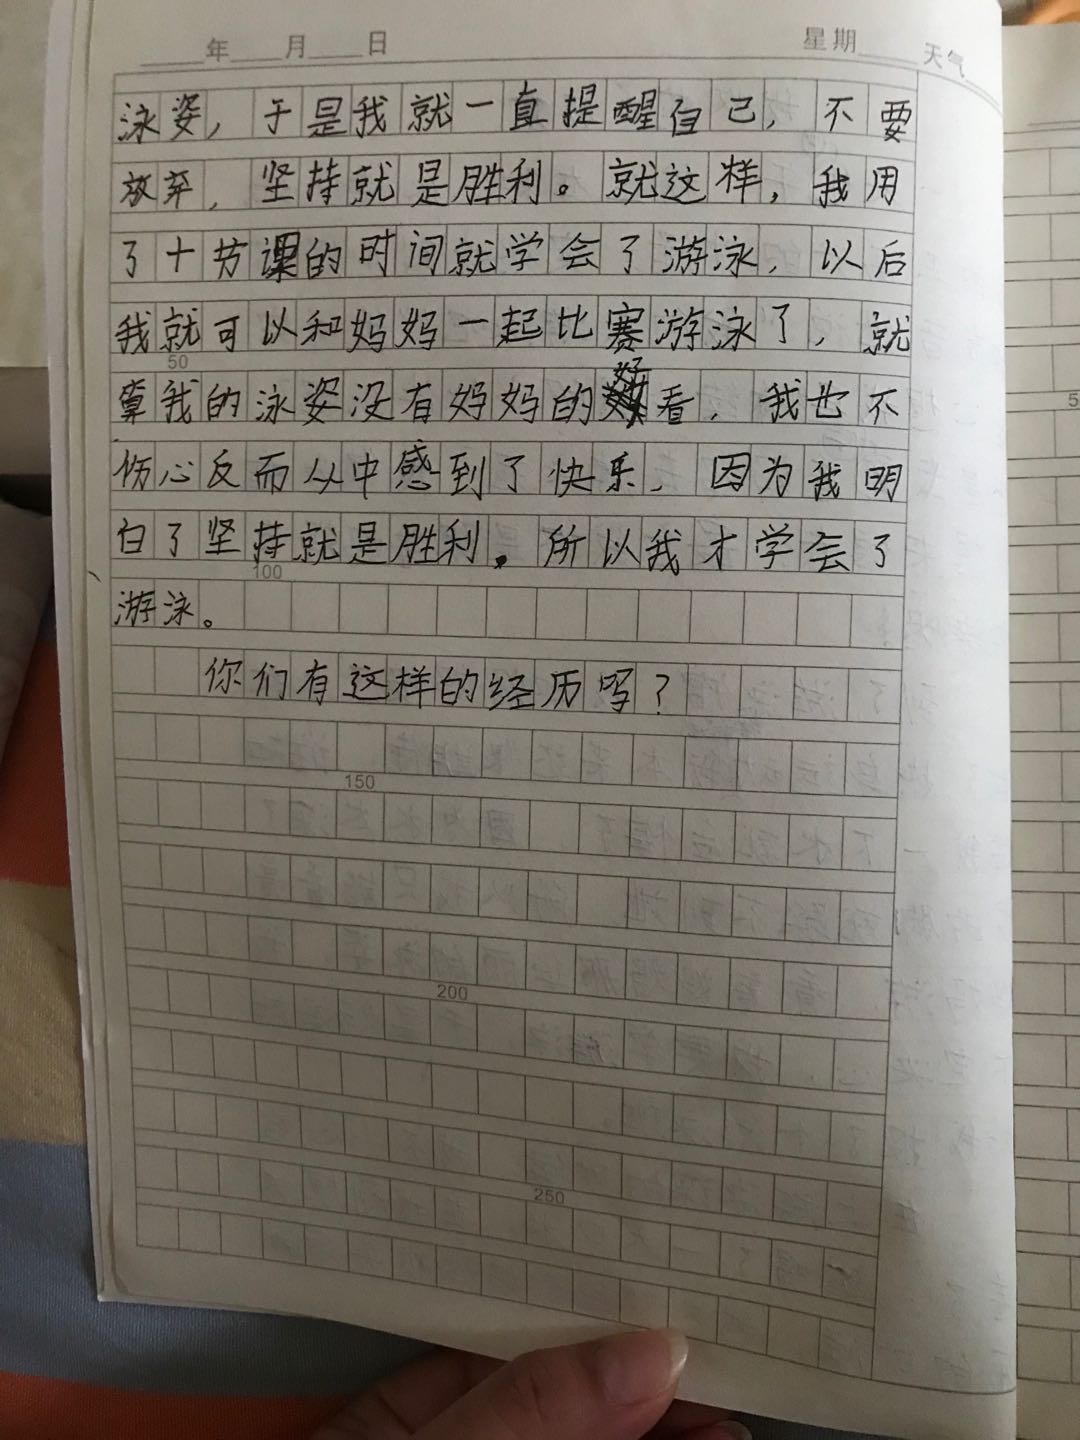 年 月 日 星期 天气
泳姿，于是我就一直提醒自己，不要
放弃，坚持就是胜利。就这样，我用
了十节课的时间就学会了游泳，以后
我就可以和妈妈一起比赛游泳了，就
50
算我的泳姿没有妈妈的好看，我也不
伤心反而从中感到了快乐，因为我明
白了坚持就是胜利，所以我才学会了
100
游泳。
你们有这样的经历吗？
150
200
250
5